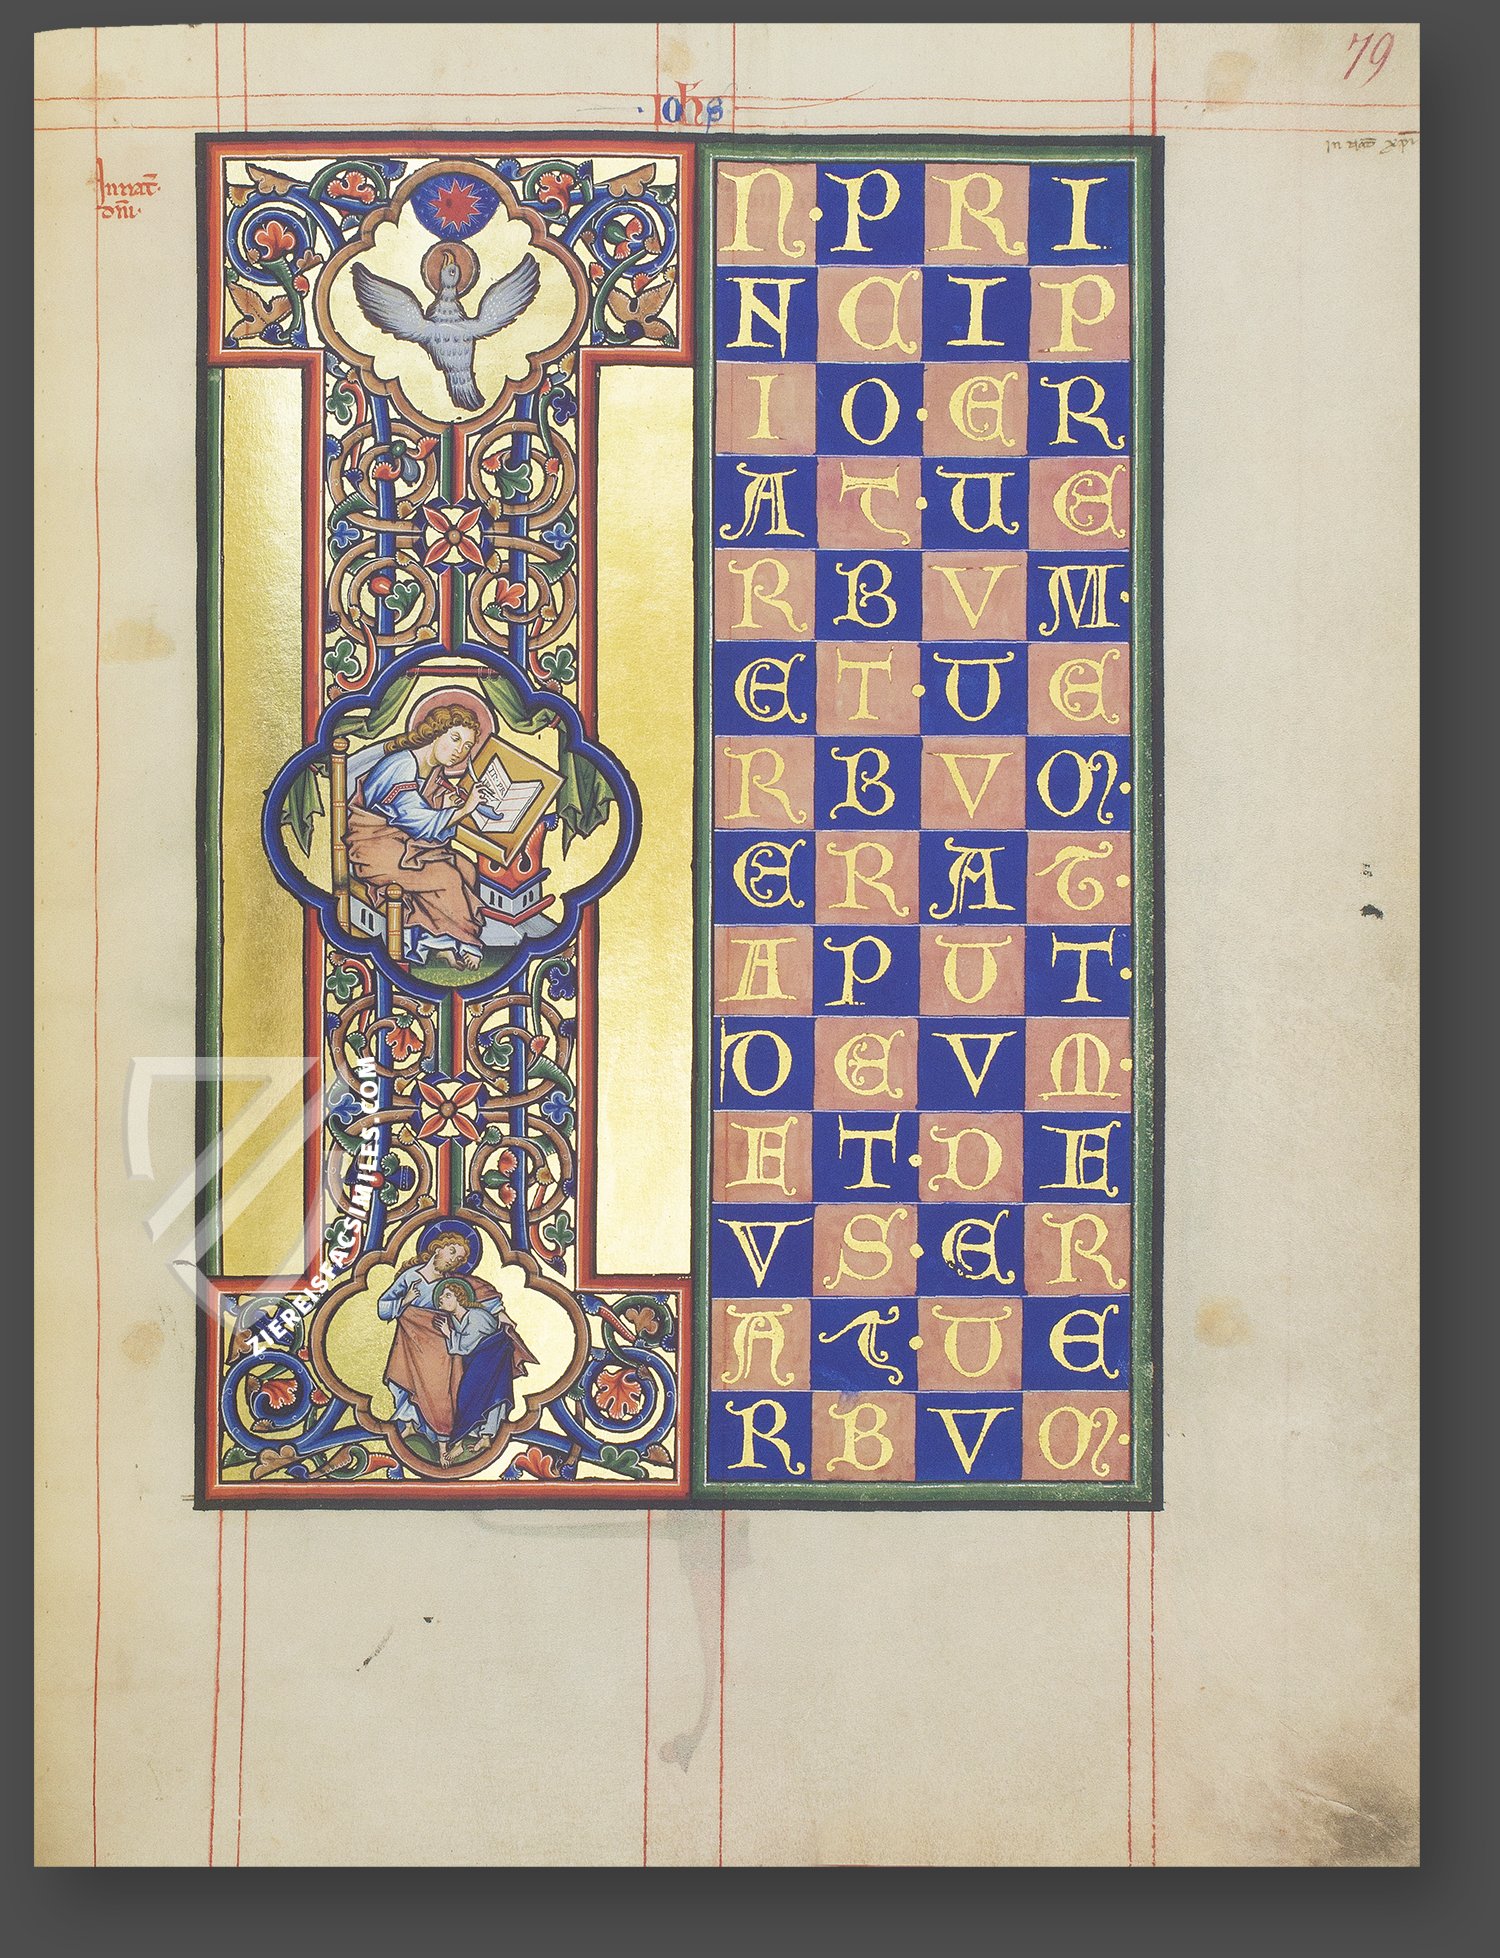 79
·Iohs
In nat̄·
dn̄i·
I
N·PRI
NCIP
IO·ER
AT·UE
RBVM·
ET·UE
RBVM·
ERAT·
APUT·
DEVM·
ET·DE
VS·ER
AT·UE
RBVM·
ZIEREISFACSIMILES.COM